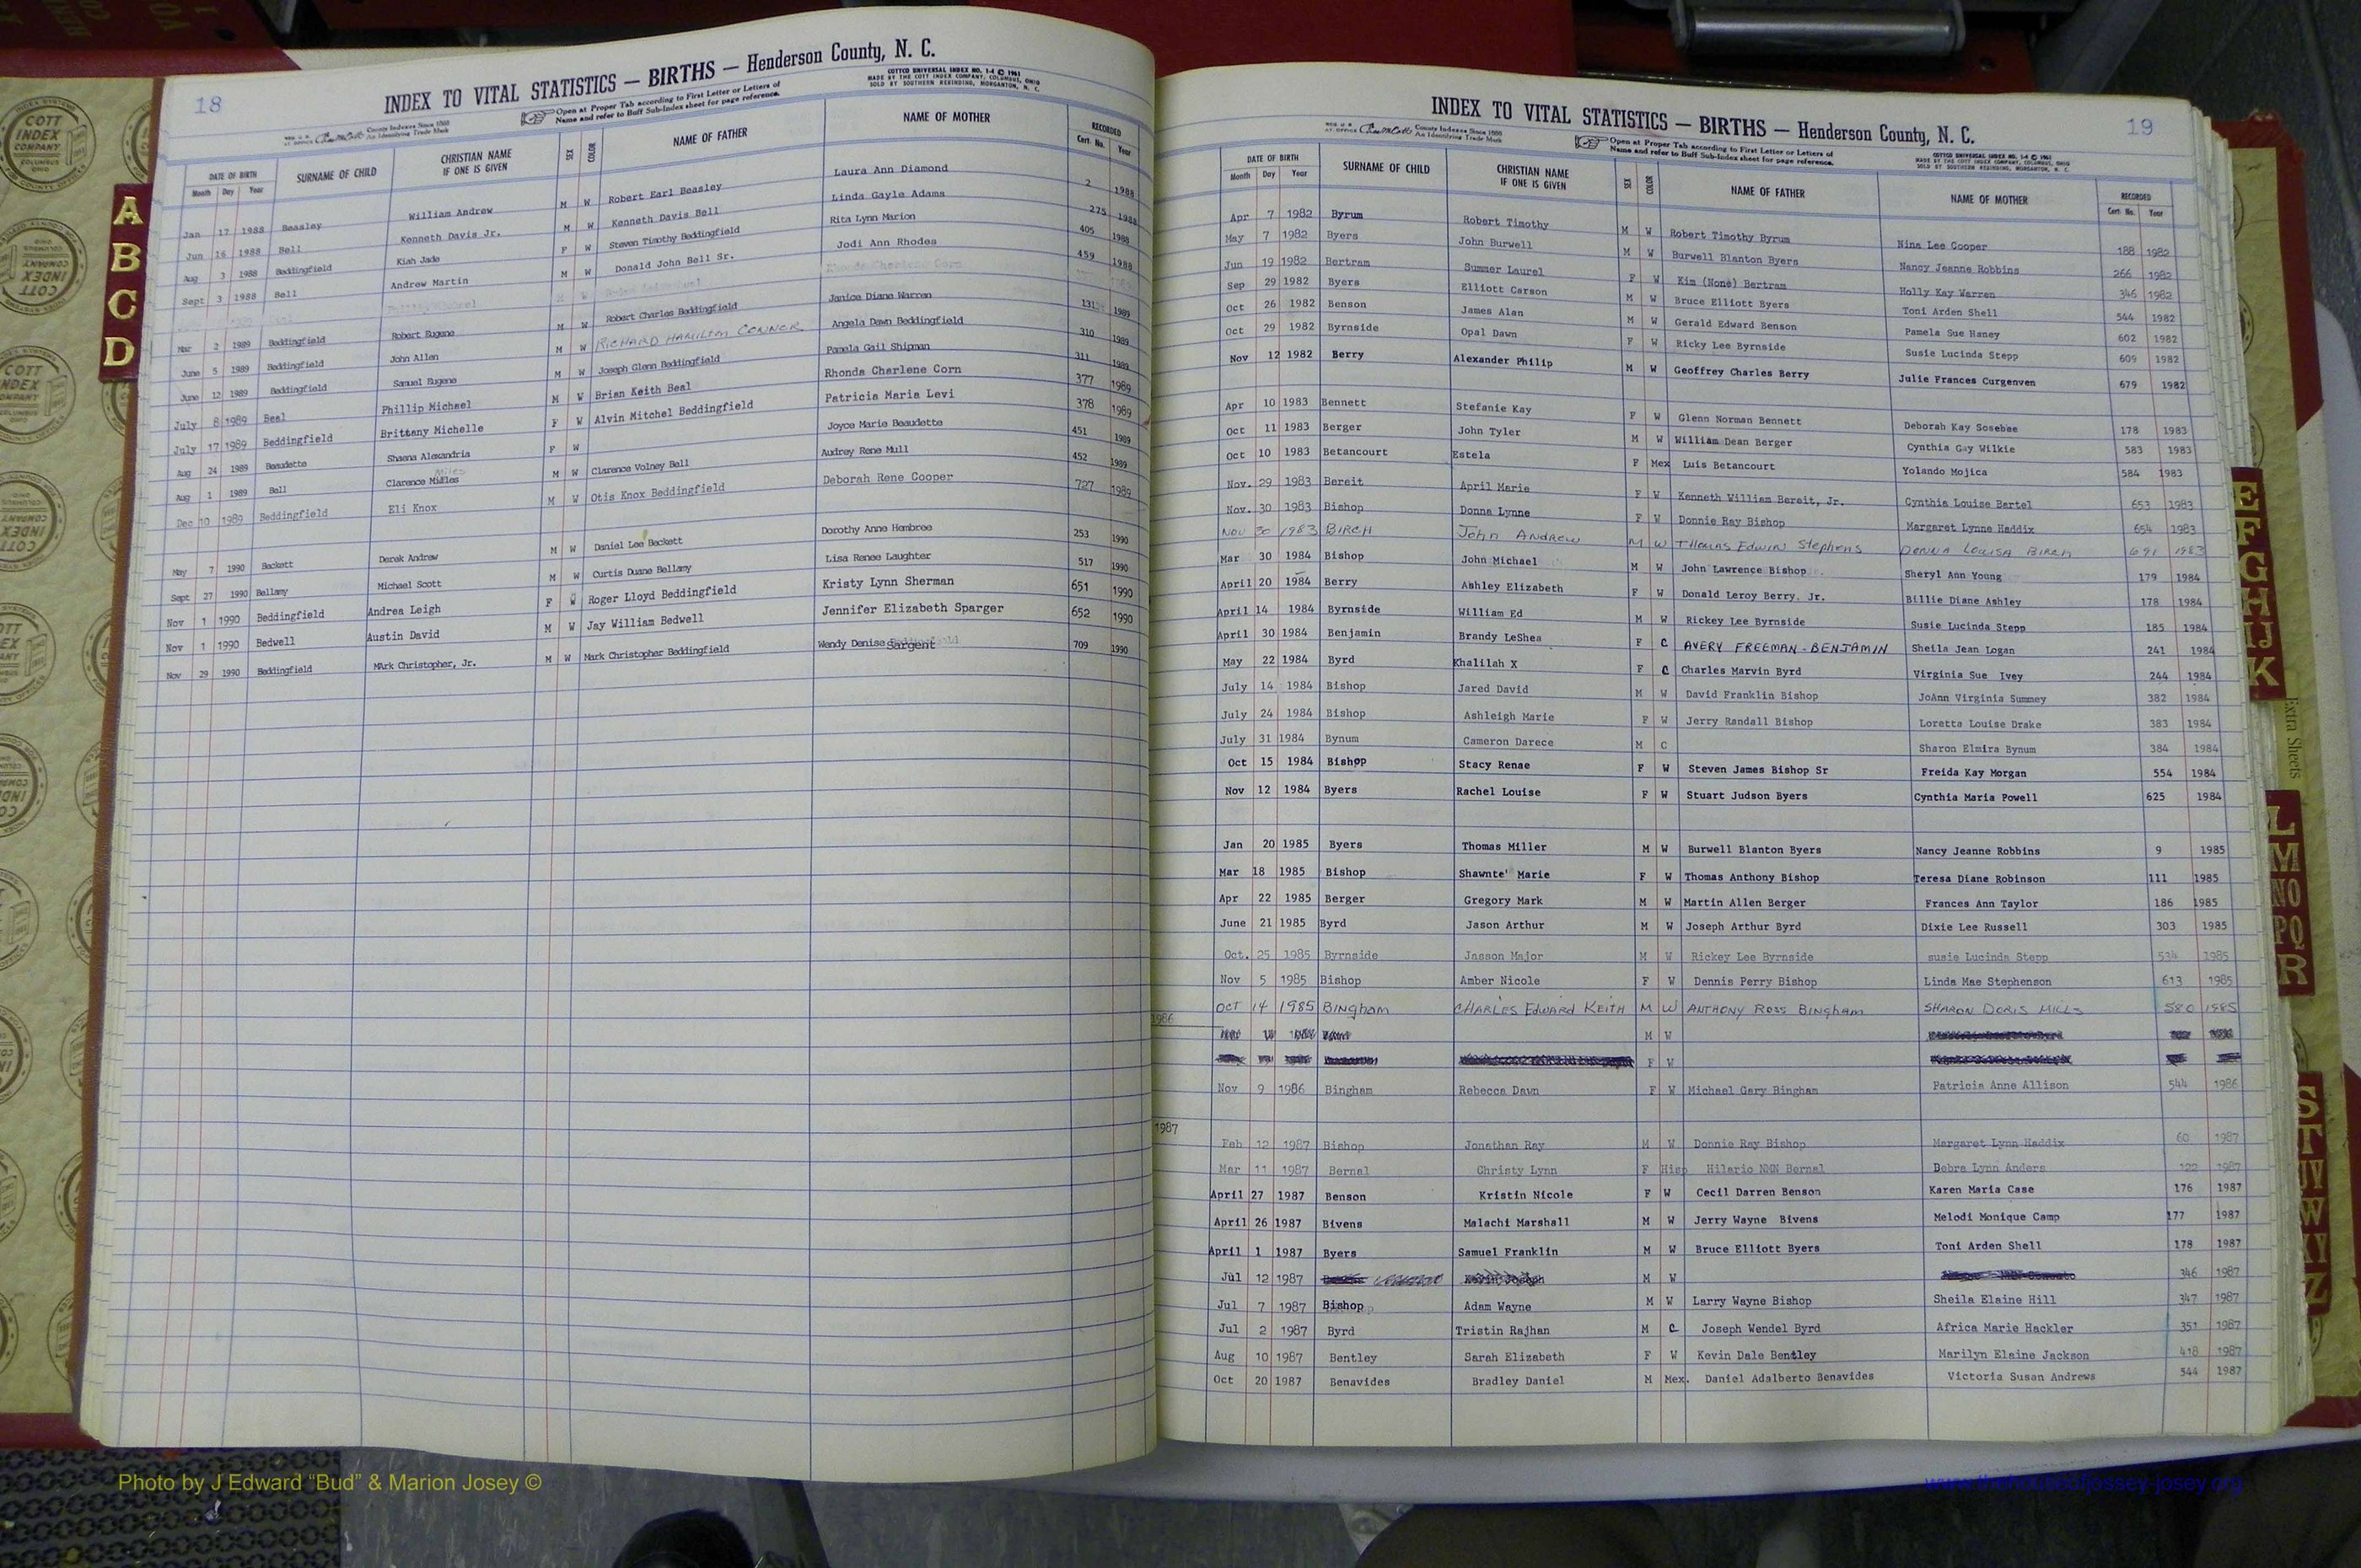 18
INDEX TO VITAL STATISTICS — BIRTHS — Henderson County, N. C.
COTTCO UNIVERSAL INDEX NO. 1-4 © 1961
MADE BY THE COTT INDEX COMPANY, COLUMBUS, OHIO
SOLD BY SOUTHERN REBINDING, MORGANTON, N. C.
County Indexes Since 1888
An Identifying Trade Mark
Open at Proper Tab according to First Letter or Letters of
Name and refer to Buff Sub-Index sheet for page reference.
DATE OF BIRTH SURNAME OF CHILD CHRISTIAN NAME IF ONE IS GIVEN SEX COLOR NAME OF FATHER NAME OF MOTHER RECORDED
Month Day Year Cert. No. Year
Jan 17 1988 Beasley William Andrew M W Robert Earl Beasley Laura Ann Diamond 2 1988
Jun 16 1988 Bell Kenneth Davis Jr. M W Kenneth Davis Bell Linda Gayle Adams 275 1988
Aug 3 1988 Beddingfield Kiah Jade F W Steven Timothy Beddingfield Rita Lynn Marion 405 1988
Sept 3 1988 Bell Andrew Martin M W Donald John Bell Sr. Jodi Ann Rhodes 459 1988
Mar 2 1989 Beddingfield Robert Eugene M W Robert Charles Beddingfield Janice Diane Warren 131 1989
June 5 1989 Beddingfield John Allen M W RICHARD HAMILTON CONNOR Angela Dawn Beddingfield 310 1989
June 12 1989 Beddingfield Samuel Eugene M W Joseph Glenn Beddingfield Pamela Gail Shipman 311 1989
July 8 1989 Beal Phillip Michael M W Brian Keith Beal Rhonda Charlene Corn 377 1989
July 17 1989 Beddingfield Brittany Michelle F W Alvin Mitchel Beddingfield Patricia Maria Levi 378 1989
Aug 24 1989 Beaudette Shaena Alexandria F W Joyce Marie Beaudette 451 1989
Aug 1 1989 Bell Clarence Miles M W Clarence Volney Bell Audrey Rene Mull 452 1989
Dec 10 1989 Beddingfield Eli Knox M W Otis Knox Beddingfield Deborah Rene Cooper 727 1989
May 7 1990 Beckett Derek Andrew M W Daniel Lee Beckett Dorothy Anne Hembree 253 1990
Sept 27 1990 Bellamy Michael Scott M W Curtis Duane Bellamy Lisa Renee Laughter 517 1990
Nov 1 1990 Beddingfield Andrea Leigh F W Roger Lloyd Beddingfield Kristy Lynn Sherman 651 1990
Nov 1 1990 Bedwell Austin David M W Jay William Bedwell Jennifer Elizabeth Sparger 652 1990
Nov 29 1990 Beddingfield Mark Christopher, Jr. M W Mark Christopher Beddingfield Wendy Denise Sargent 709 1990
19
INDEX TO VITAL STATISTICS — BIRTHS — Henderson County, N. C.
County Indexes Since 1888
An Identifying Trade Mark
Open at Proper Tab according to First Letter or Letters of
Name and refer to Buff Sub-Index sheet for page reference.
COTTCO UNIVERSAL INDEX NO. 1-4 © 1961
MADE BY THE COTT INDEX COMPANY, COLUMBUS, OHIO
SOLD BY SOUTHERN REBINDING, MORGANTON, N. C.
DATE OF BIRTH SURNAME OF CHILD CHRISTIAN NAME IF ONE IS GIVEN SEX COLOR NAME OF FATHER NAME OF MOTHER RECORDED
Month Day Year Cert. No. Year
Apr 7 1982 Byrum Robert Timothy M W Robert Timothy Byrum Nina Lee Cooper 188 1982
May 7 1982 Byers John Burwell M W Burwell Blanton Byers Nancy Jeanne Robbins 266 1982
Jun 19 1982 Bertram Summer Laurel F W Kim (None) Bertram Holly Kay Warren 346 1982
Sep 29 1982 Byers Elliott Carson M W Bruce Elliott Byers Toni Arden Shell 544 1982
Oct 26 1982 Benson James Alan M W Gerald Edward Benson Pamela Sue Haney 602 1982
Oct 29 1982 Byrnside Opal Dawn F W Ricky Lee Byrnside Susie Lucinda Stepp 609 1982
Nov 12 1982 Berry Alexander Philip M W Geoffrey Charles Berry Julie Frances Curgenven 679 1982
Apr 10 1983 Bennett Stefanie Kay F W Glenn Norman Bennett Deborah Kay Sosebee 178 1983
Oct 11 1983 Berger John Tyler M W William Dean Berger Cynthia Gay Wilkie 583 1983
Oct 10 1983 Betancourt Estela F Mex Luis Betancourt Yolando Mojica 584 1983
Nov. 29 1983 Bereit April Marie F W Kenneth William Bereit, Jr. Cynthia Louise Bartel 653 1983
Nov. 30 1983 Bishop Donna Lynne F W Donnie Ray Bishop Margaret Lynne Haddix 654 1983
NOV 30 1983 BIRCH John ANDREW M W THOMAS EDWIN Stephens DONNA LOUISA BIRCH 691 1983
Mar 30 1984 Bishop John Michael M W John Lawrence Bishop Sheryl Ann Young 179 1984
April 20 1984 Berry Ashley Elizabeth F W Donald Leroy Berry, Jr. Billie Diane Ashley 178 1984
April 14 1984 Byrnside William Ed M W Rickey Lee Byrnside Susie Lucinda Stepp 185 1984
April 30 1984 Benjamin Brandy LeShea F C AVERY FREEMAN-BENJAMIN Sheila Jean Logan 241 1984
May 22 1984 Byrd Khalilah X F C Charles Marvin Byrd Virginia Sue Ivey 244 1984
July 14 1984 Bishop Jared David M W David Franklin Bishop JoAnn Virginia Summey 382 1984
July 24 1984 Bishop Ashleigh Marie F W Jerry Randall Bishop Loretta Louise Drake 383 1984
July 31 1984 Bynum Cameron Darece M C Sharon Elmira Bynum 384 1984
Oct 15 1984 Bishop Stacy Renae F W Steven James Bishop Sr Freida Kay Morgan 554 1984
Nov 12 1984 Byers Rachel Louise F W Stuart Judson Byers Cynthia Maria Powell 625 1984
Jan 20 1985 Byers Thomas Miller M W Burwell Blanton Byers Nancy Jeanne Robbins 9 1985
Mar 18 1985 Bishop Shawnte' Marie F W Thomas Anthony Bishop Teresa Diane Robinson 111 1985
Apr 22 1985 Berger Gregory Mark M W Martin Allen Berger Frances Ann Taylor 186 1985
June 21 1985 Byrd Jason Arthur M W Joseph Arthur Byrd Dixie Lee Russell 303 1985
Oct. 25 1985 Byrnside Jasson Major M W Rickey Lee Byrnside susie Lucinda Stepp 534 1985
Nov 5 1985 Bishop Amber Nicole F W Dennis Perry Bishop Linda Mae Stephenson 613 1985
OCT 14 1985 BINgham CHARLES EDWARD KEITH M W ANTHONY ROSS BINGham SHARON DORIS MILLS 580 1985
1986
M W
F W
Nov 9 1986 Bingham Rebecca Dawn F W Michael Gary Bingham Patricia Anne Allison 544 1986
1987
Feb 12 1987 Bishop Jonathan Ray M W Donnie Ray Bishop Margaret Lynn Haddix 60 1987
Mar 11 1987 Bernal Christy Lynn F Hisp Hilario NMN Bernal Debra Lynn Anders 122 1987
April 27 1987 Benson Kristin Nicole F W Cecil Darren Benson Karen Maria Case 176 1987
April 26 1987 Bivens Malachi Marshall M W Jerry Wayne Bivens Melodi Monique Camp 177 1987
April 1 1987 Byers Samuel Franklin M W Bruce Elliott Byers Toni Arden Shell 178 1987
Jul 12 1987 M W 346 1987
Jul 7 1987 Bishop Adam Wayne M W Larry Wayne Bishop Sheila Elaine Hill 347 1987
Jul 2 1987 Byrd Tristin Rajhan M C Joseph Wendel Byrd Africa Marie Hackler 351 1987
Aug 10 1987 Bentley Sarah Elizabeth F W Kevin Dale Bentley Marilyn Elaine Jackson 418 1987
Oct 20 1987 Benavides Bradley Daniel M Mex. Daniel Adalberto Benavides Victoria Susan Andrews 544 1987
A
B
C
D
E
F
G
H
IJ
K
Extra Sheets
L
M
NO
PQ
R
S
T
UV
W
XY
Z
COTT
INDEX
COMPANY
COLUMBUS
OHIO
Photo by J Edward “Bud” & Marion Josey ©
www.thehouseofjossey-josey.org